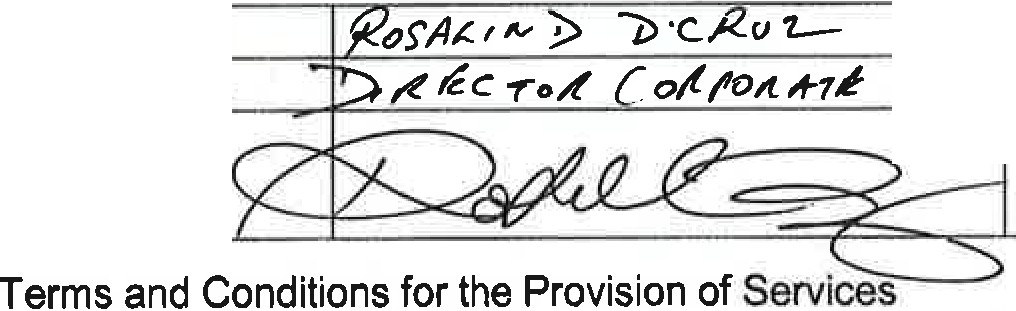 ROSALIND D'CRUZ
DIRECTOR CORPORATE
Terms and Conditions for the Provision of Services